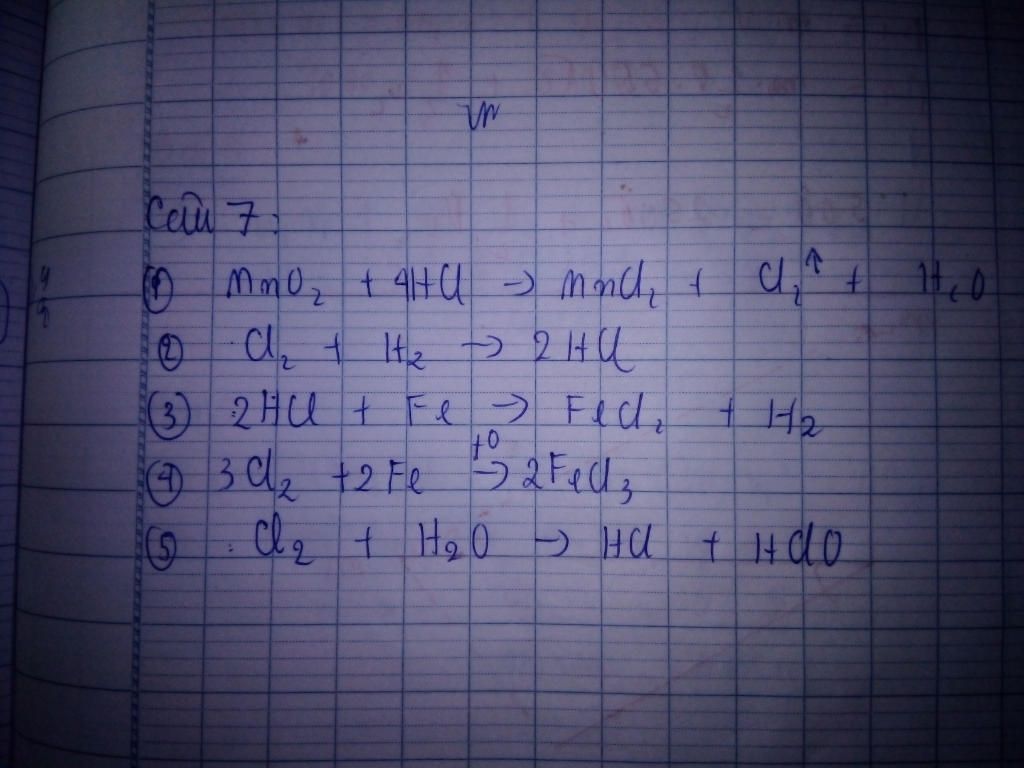 Câu 7:
① MnO₂ + 4HCl → MnCl₂ + Cl₂↑ + H₂O
② Cl₂ + H₂ → 2HCl
③ 2HCl + Fe → FeCl₂ + H₂
④ 3Cl₂ + 2Fe →(t⁰) 2FeCl₃
⑤ Cl₂ + H₂O → HCl + HClO